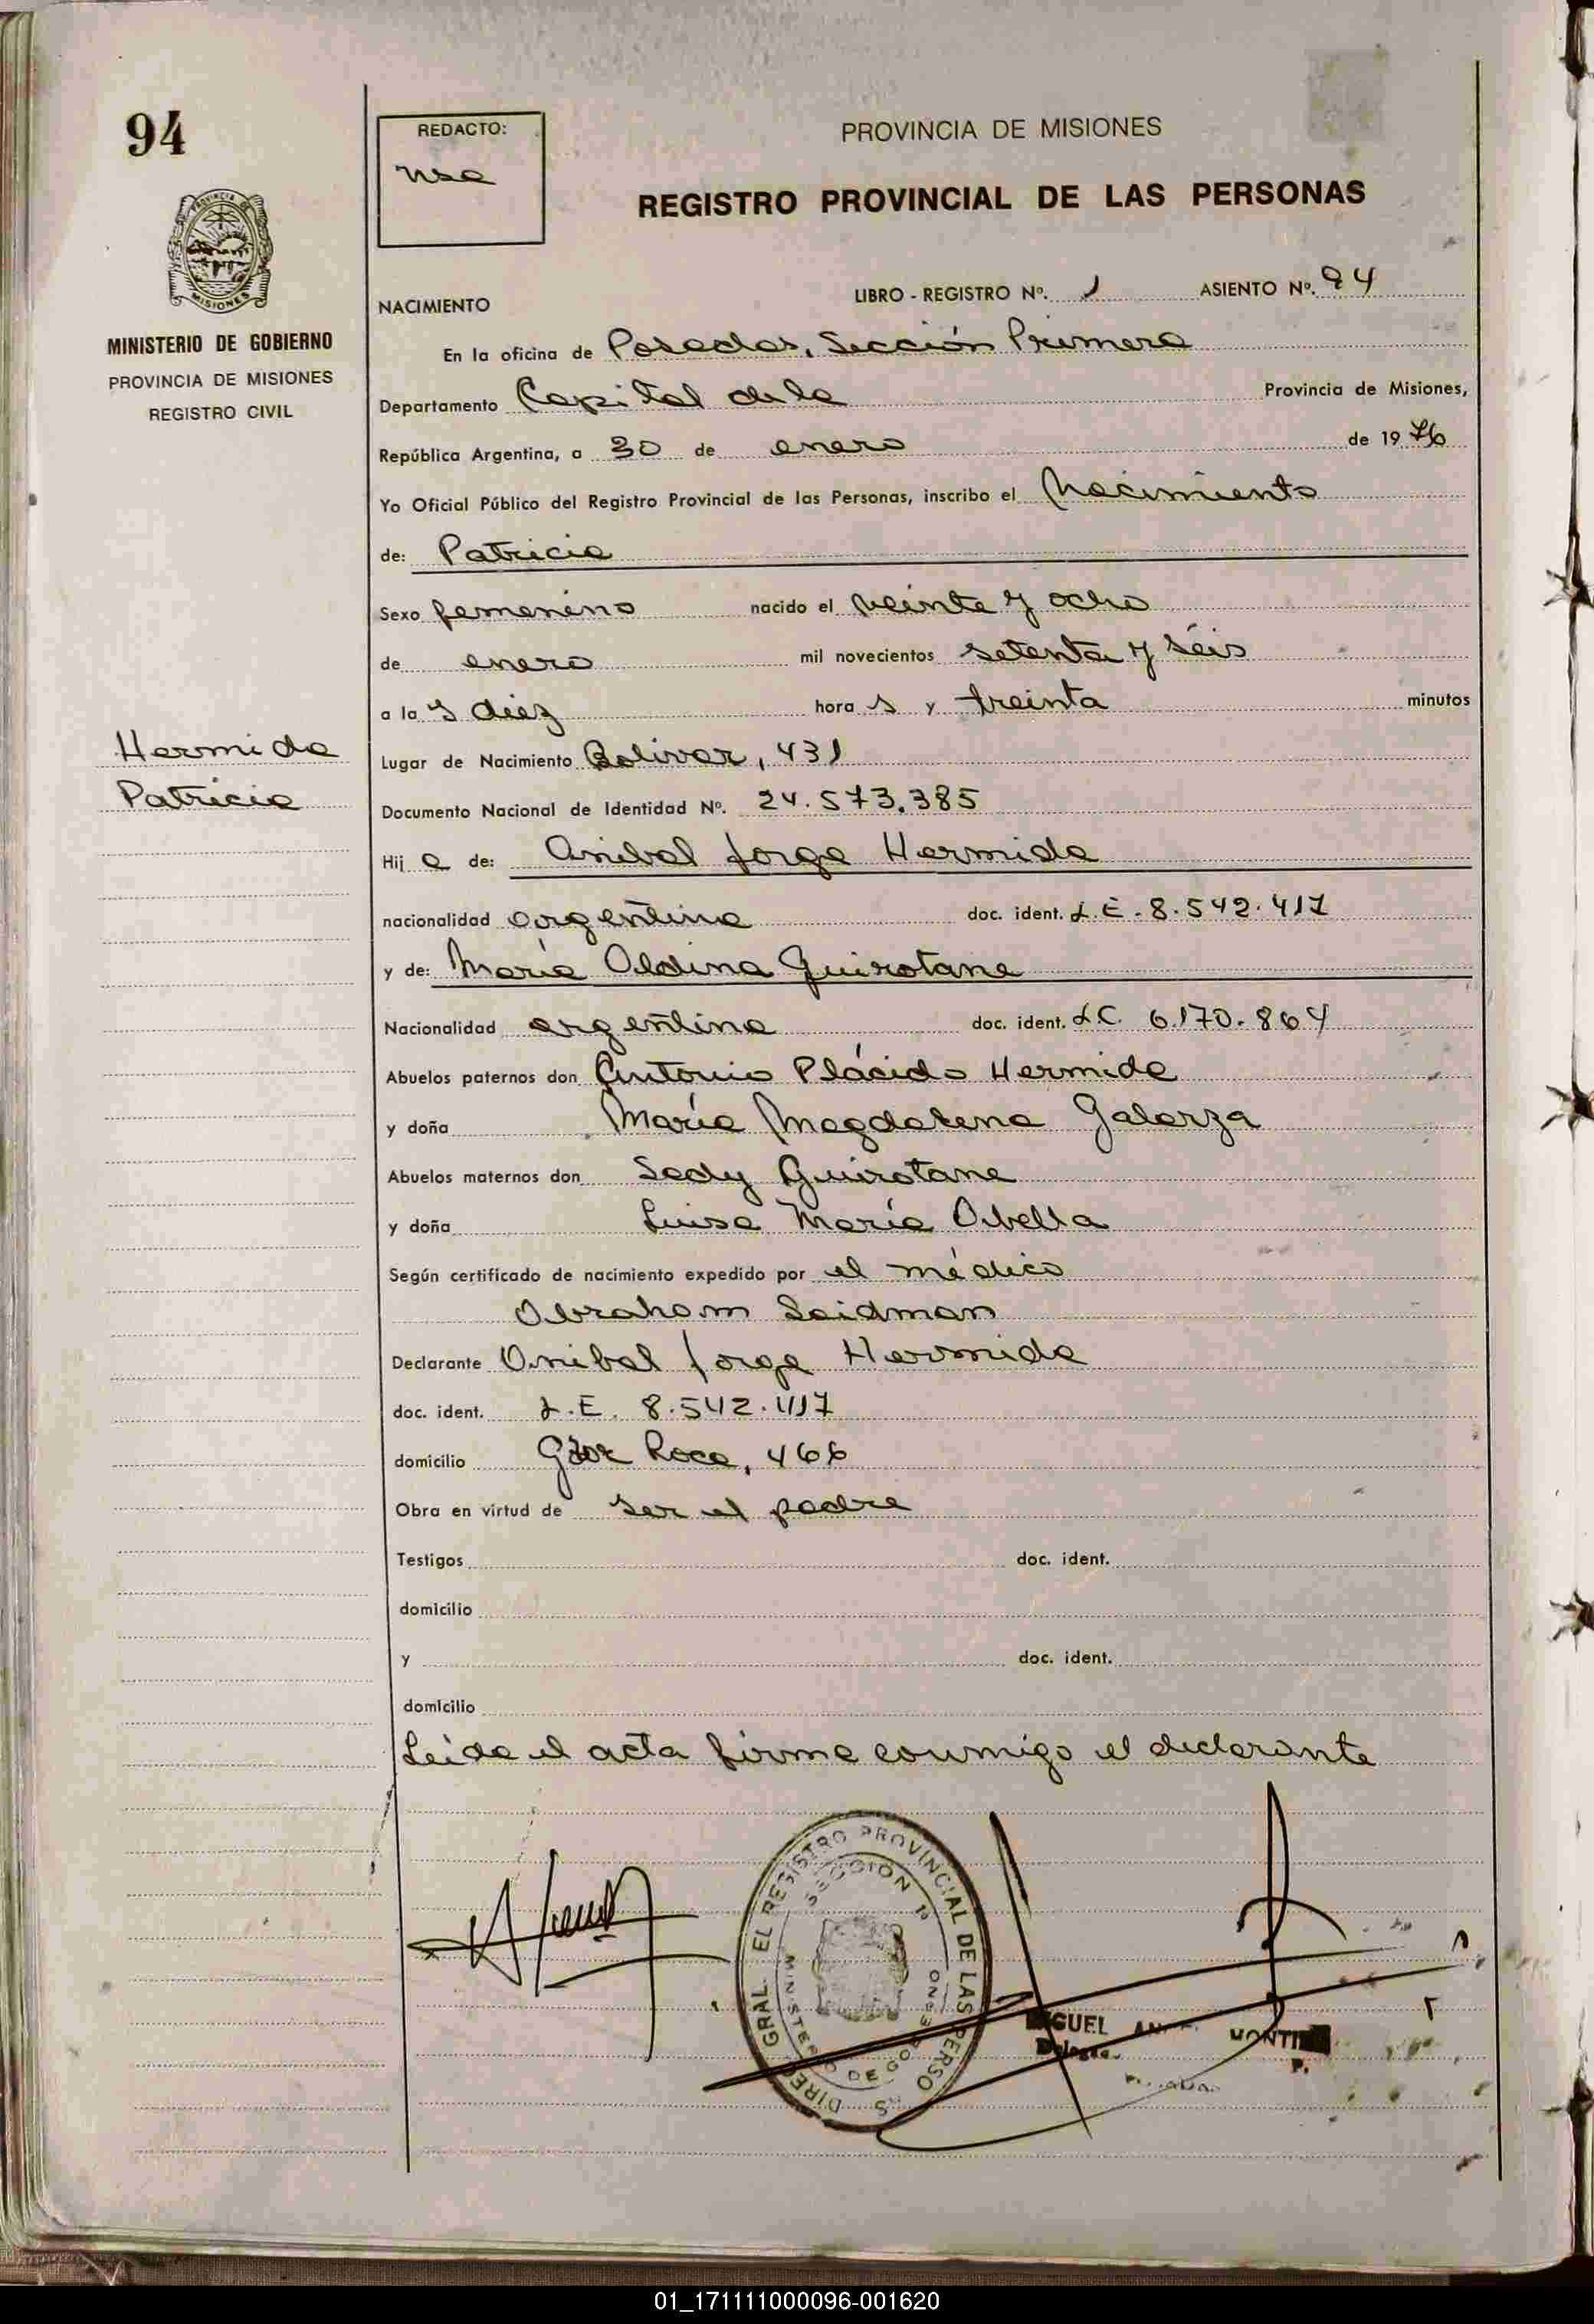 94
REDACTO:
PROVINCIA DE MISIONES
REGISTRO PROVINCIAL DE LAS PERSONAS
MISIONES
MINISTERIO DE GOBIERNO
PROVINCIA DE MISIONES
REGISTRO CIVIL
NACIMIENTO LIBRO - REGISTRO Nº. 1 ASIENTO Nº. 94
En la oficina de Posadas, Sección Primera
Departamento Capital de la Provincia de Misiones,
República Argentina, a 30 de enero de 1976
Yo Oficial Público del Registro Provincial de las Personas, inscribo el Nacimiento
de: Patricia
Sexo femenino nacido el veinte y ocho
de enero mil novecientos setenta y séis
a las diez horas y treinta minutos
Hermida
Patricia
Lugar de Nacimiento Bolívar, 431
Documento Nacional de Identidad Nº. 24.573.385
Hija de: Anibal Jorge Hermida
nacionalidad argentina doc. ident. L.E. 8.542.417
y de: María Aldina Guirotane
Nacionalidad argentina doc. ident. L.C. 6.170.864
Abuelos paternos don Antonio Plácido Hermida
y doña María Magdalena Galarza
Abuelos maternos don Sady Guirotane
y doña Luisa María Orbella
Según certificado de nacimiento expedido por el médico
Abraham Saidman
Declarante Anibal Jorge Hermida
doc. ident. L.E. 8.542.417
domicilio Gdor Roca, 466
Obra en virtud de ser el padre
Testigos doc. ident.
domicilio
y doc. ident.
domicilio
Leída el acta firma conmigo el declarante
REGISTRO PROVINCIAL DE LAS PERSO
SECCION 1º
MINISTERIO DE GOBIERNO
01_171111000096-001620